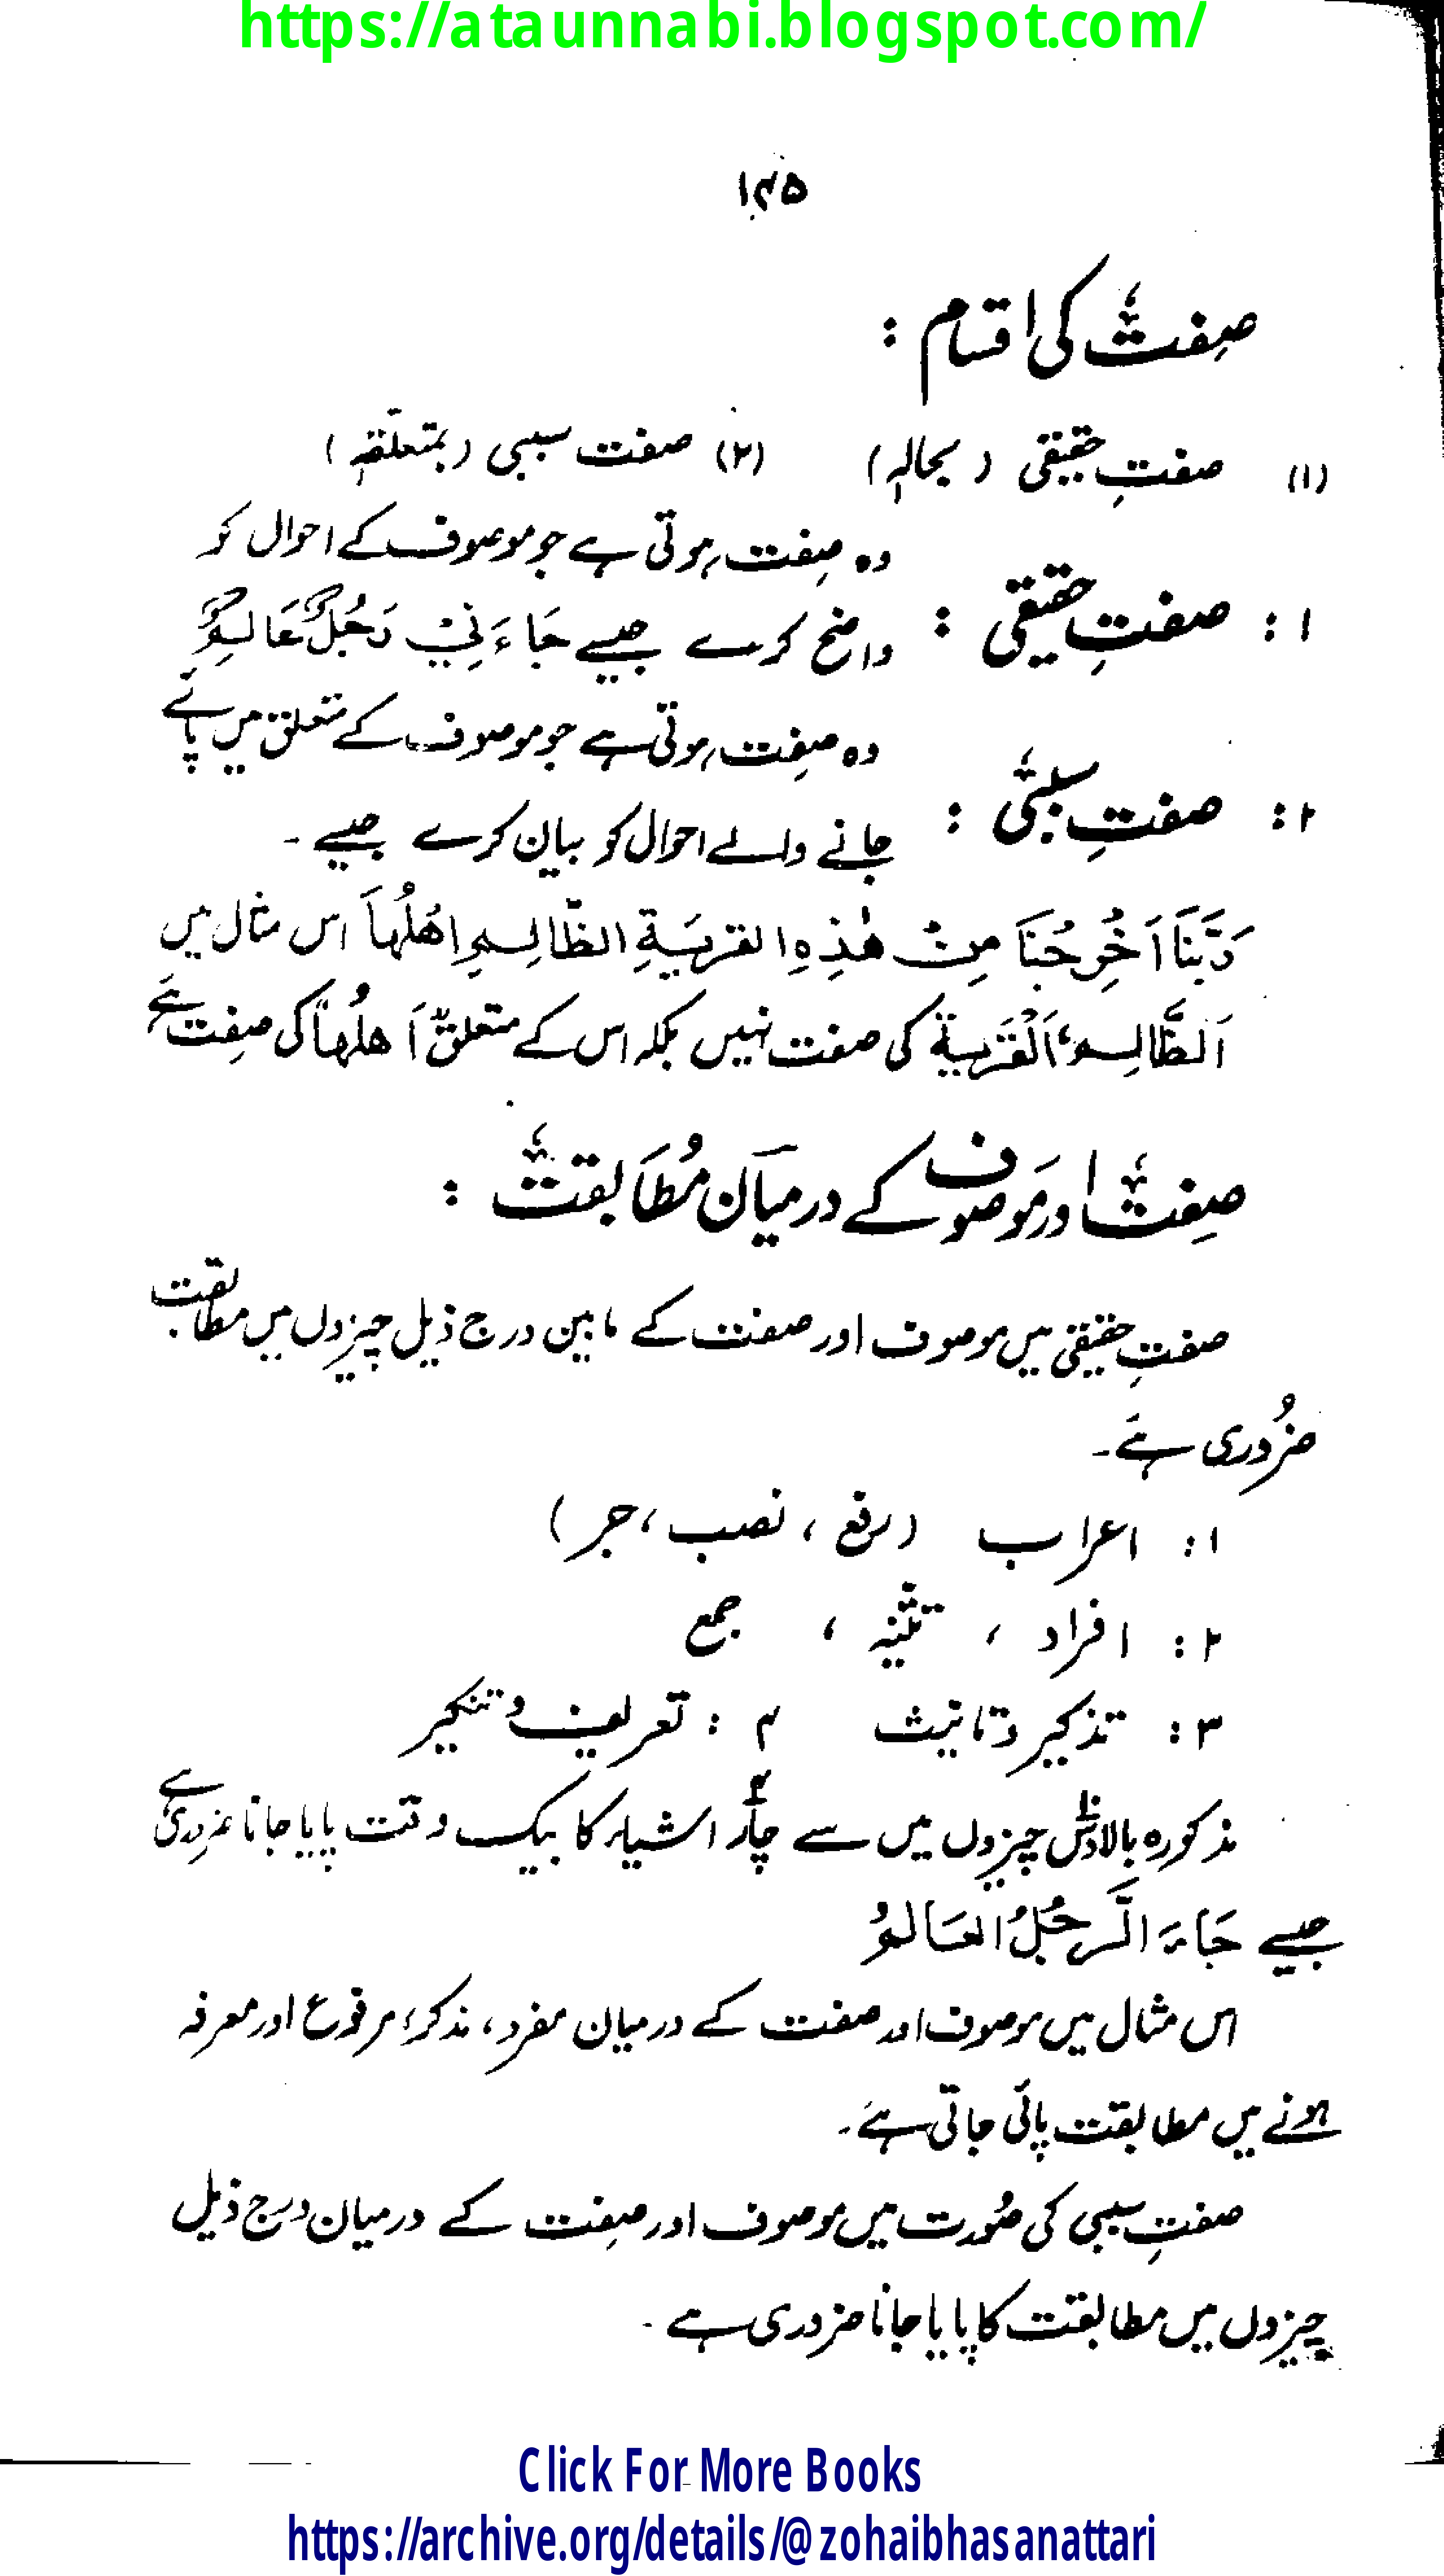 https://ataunnabi.blogspot.com/
۱۴۵
صفت کی اقسام :
(۱) صفتِ حقیقی (بحالہٖ) (۲) صفت سببی (بمتعلّقہٖ)
۱: صفتِ حقیقی : وہ صِفت ہوتی ہے جو موصوف کے احوال کو
واضح کرے جیسے جَاءَنِیْ رَجُلٌ عَالِمٌ
۲: صفتِ سببی : وہ صِفت ہوتی ہے جو موصوف کے متعلق میں پائے
جانے والے احوال کو بیان کرے جیسے ۔
رَبَّنَا اَخْرِجْنَا مِنْ ھٰذِہِ القریَۃِ الظَّالِمِ اھْلُھَا اس مثال میں
اَلظَّالِم، اَلْقَریۃ کی صفت نہیں بلکہ اس کے متعلق اَھلُھَا کی صِفت ہَے
صِفت اور مَوصوف کے درمیان مُطَابقت :
صفتِ حقیقی میں موصوف اور صفت کے مابین درج ذیل چیزوں میں مطابقت
ضرُوری ہَے۔
۱: اعراب (رفع ، نصب ، جر)
۲: افراد ، تثنیہ ، جمع
۳: تذکیر و تانیث ۴: تعریف و تنکیر
مذکورہ بالا دس چیزوں میں سے چار اشیاء کا بیک وقت پایا جانا ضروری ہے
جیسے جَاءَ الرَّجُلُ العَالمُ
اس مثال میں موصوف اور صفت کے درمیان مفرد، مذکر، مرفوع اور معرفہ
ہونے میں مطابقت پائی جاتی ہَے۔
صفتِ سببی کی صُورت میں موصوف اور صِفت کے درمیان درج ذیل
چیزوں میں مطابقت کا پایا جانا ضروری ہے ۔
Click For More Books
https://archive.org/details/@zohaibhasanattari